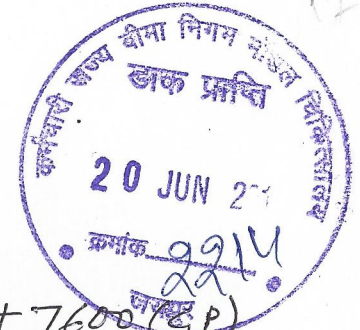 कर्मचारी राज्य बीमा निगम मॉडल चिकित्सालय
डाक प्राप्ति
20 JUN
क्रमांक 2214
जयपुर
+ 7600 (G.P)